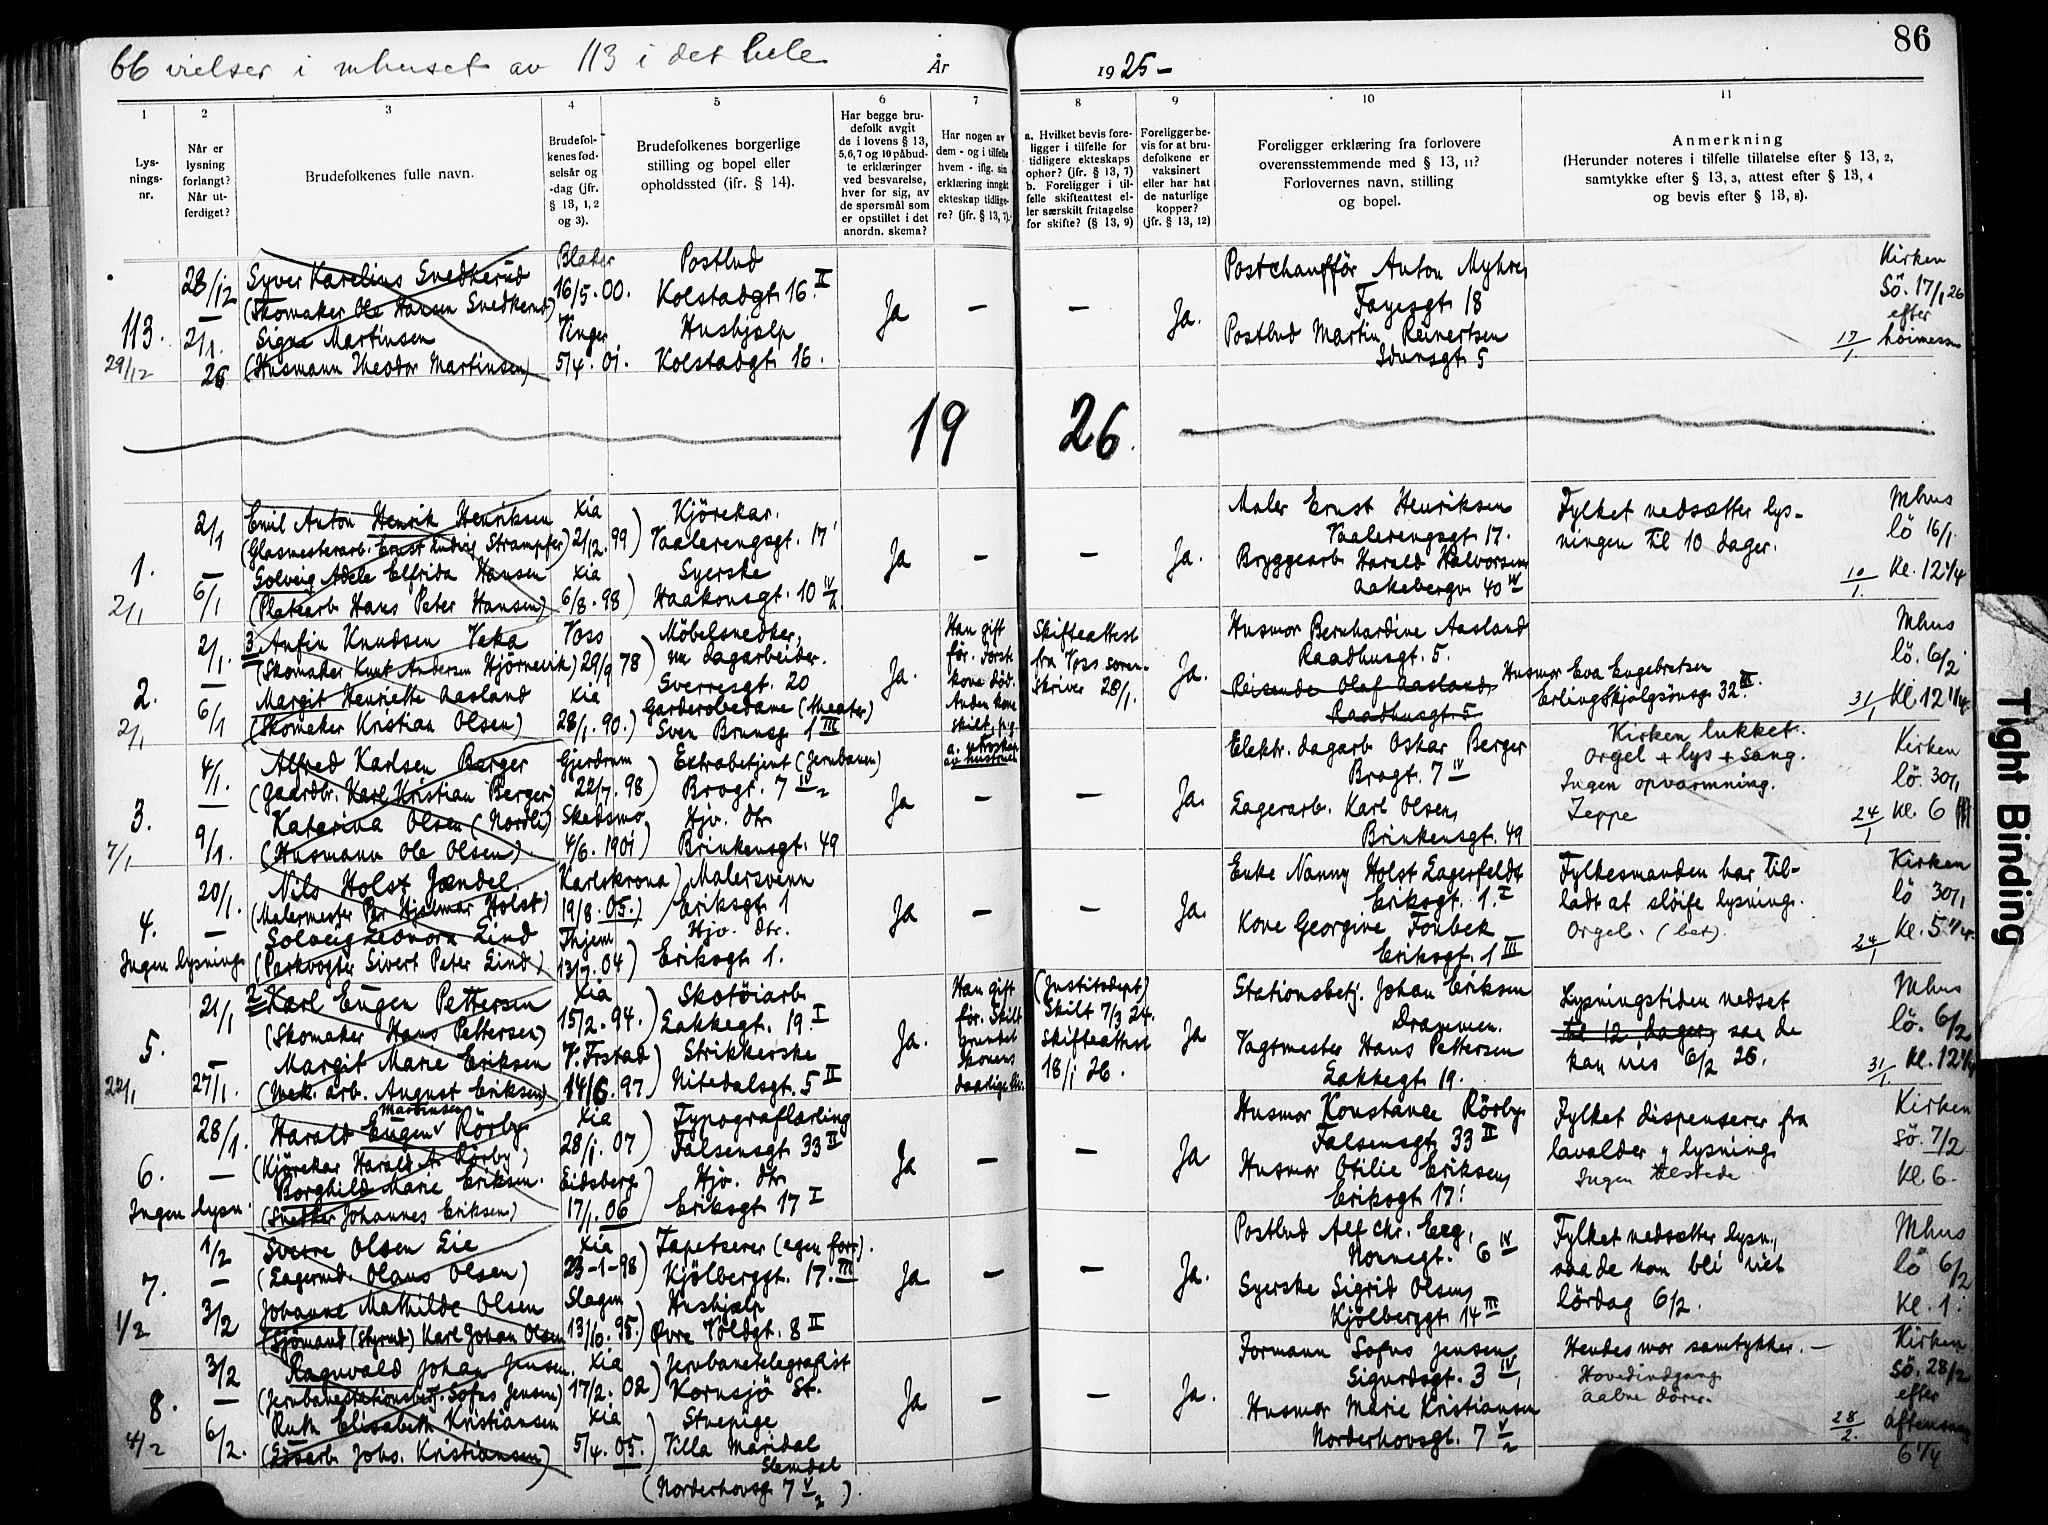 66 vielser i mhuset av 113 i det hele
År
1925 –
86
1
2
3
4
5
6
7
8
9
10
11
Lys-
nings-
nr.
Når er
lysning
forlangt?
Når ut-
ferdiget?
Brudefolkenes fulle navn.
Brudefol-
kenes fød-
selsår og
-dag (jfr.
§ 13, 1, 2
og 3).
Brudefolkenes borgerlige
stilling og bopel eller
opholdssted (jfr. § 14).
Har begge bru-
defolk avgit
de i lovens § 13,
5,6,7 og 10 påbud-
te erklæringer
ved besvarelse,
hver for sig, av
de spørsmål som
er opstillet i det
anordn. skema?
Har nogen av
dem - og i tilfelle
hvem - iflg. sin
erklæring inngåt
ekteskap tidlige-
re? (jfr. § 13, 7).
a. Hvilket bevis fore-
ligger i tilfelle for
tidligere ekteskaps
ophør? (jfr. § 13, 7)
b. Foreligger i til-
felle skifteattest el-
ler særskilt fritagelse
for skifte? (§ 13, 9)
Foreligger be-
vis for at bru-
defolkene er
vaksinert
eller har hat
de naturlige
kopper?
(jfr. § 13, 12)
Foreligger erklæring fra forlovere
overensstemmende med § 13, 11?
Forlovernes navn, stilling
og bopel.
Anmerkning
(Herunder noteres i tilfelle tillatelse efter § 13, 2,
samtykke efter § 13, 3, attest efter § 13, 4
og bevis efter § 13, 8).
113.
29/12
28/12
—
2/1.
26
Syver Karelius Snedkerud
(Skomaker Ole Hansen Snedkerud)
Signe Martinsen
(Husmann Theodor Martinsen)
16/5.00.
Vinger
5/4.01.
Postbud
Kolstadgt. 16. II
Hushjælp
Kolstadgt. 16.
Ja
—
—
Ja.
Postchaufför Anton Myhre,
Fayesgt. 18
Postbud Martin Reinertsen
Idunsgt. 5
Kirken
Sö. 17/1 26
efter
höimessen
17/1
1926.
1.
2/1
2/1
—
6/1
Emil Anton Henrik Henriksen
(Glasmesterarb. Ernst Ludvig Strampfer)
Solveig Adele Elfrida Hansen
(Platearb. Hans Peter Hansen)
Xia
2/12.99)
Xia
6/8.98)
Kjörekar.
Vaalerengsgt. 17
Syerske
Haakonsgt. 10 IV/2
Ja
—
—
Ja.
Maler Ernst Henriksen
Vaalerengsgt. 17.
Bryggearb. Harald Halvorsen
Aakebergv. 40 IV
Fylket nedsætter lys-
ningen til 10 dager.
10/1.
Mhus
lö 16/1
Kl. 12 1/4
2.
2/1
2/1.
—
6/1
3 Anfin Knudsen Veka
(Skomaker Knut Andersen Hjörnevik)
Margit Henriette Aasland
(Skomaker Kristian Olsen)
Voss
29/9 78)
Xia
28/1.90.)
Möbelsnedker,
nu dagarbeider.
Sverresgt. 20
Garderobedame (theater)
Sven Brunsg. 1 III
Ja.
Han gift
för. Förste
kone död.
Anden kone
skilt, p.g.
a. utroskap
av hustruen
Skifteattest
fra Voss soren-
skriver 28/1.
Ja.
Husmor Bernhardine Aasland
Raadhusgt. 5.
Reisende Olaf Aasland,
Raadhusgt. 5
Husmor Eva Engebretsen
Erling Skjalgsönsg. 32 III.
31/1
Mhus
lö. 6/2
Kl. 12 1/4.
3.
7/1
4/1.
—
9/1.
Alfred Karlsen Berger
(Gaardbr. Karl Kristian Berger)
Katarina Olsen (Nordli)
(Husmann Ole Olsen).
Gjerdrum
22/7.98)
Skedsmo
4/6.1901)
Extrabetjent (Jernbanen)
Brogt. 7 IV/2
Hjv. dtr
Brinkensgt. 49
Ja
—
—
Ja.
Elektr. dagarb. Oskar Berger
Brogt. 7 IV
Lagerarb. Karl Olsen,
Brinkensgt. 49
Kirken lukket.
Orgel + lys + sang.
Ingen opvarmning.
Teppe
24/1
Kirken
lö. 30/1
Kl. 6
4.
Ingen lysning
20/1.
—
Nils Holst Jændel.
(Malermester Per Hjalmar Holst)
Solveig Leonora Lind
(Parkvogter Sivert Peter Lind)
Karlskrona
19/8.05.)
13/7.04)
Malersvenn
Eriksgt. 1
Hjv. dtr.
Eriksgt. 1.
Ja
—
—
Ja.
Enke Nanny Holst Lagerfeldt
Eriksgt. 1. I
Kone Georgine Fonbek
Eriksgt. 1 III
Fylkesmanden har til-
ladt at slöife lysning.
Orgel. (bet).
24/1
Kirken
lö 30/1
Kl. 5 1/4.
5.
22/1
21/1
—
27/1.
2 Karl Eugen Pettersen
(Skomaker Hans Pettersen)
Margit Marie Eriksen
(Mek. arb. August Eriksen)
Xia
15/2.94.)
14/6.97)
Skotöiarb.
Lakkegt. 19. I
Strikkerske
Nitedalsgt. 5 II
Ja.
Han gift
för. Skilt
grundet
konens
daarlige
(Justitsdept)
Skilt 7/3 24.
Skifteattest
18/1 26.
Ja
Stationsbetj. Johan Eriksen
Drammen.
Vagtmester Hans Pettersen
Lakkegt. 19.
Lysningstiden nedset
til 12 dager, saa de
kan vies 6/2 26.
31/1.
Mhus
lö. 6/2
Kl. 12 1/4
6.
Ingen lysn.
28/1.
—
Harald Eugen Martinsen Rörby
(Kjörekar Harald A. Rörby)
Borghild Marie Eriksen.
(Snedker Johannes Eriksen)
Xia
28/1.07)
Eidsberg
17/1.06)
Typograflærling
Falsensgt. 33 II
Hjv. dtr
Eriksgt. 17 I
Ja
—
—
Ja
Husmor Konstance Rörby
Falsensgt. 33 II
Husmor Otilie Eriksen,
Eriksgt 17.
Fylket dispenserer fra
lavalder & lysning
Ingen tilstede
Kirken
sö. 7/2
Kl. 6.
7.
1/2
1/2
—
3/2
Sverre Olsen Lie
(Lagermd. Olaus Olsen)
Johanne Mathilde Olsen
(Sjömand (styrmd) Karl Johan Olsen
Xia
23-1-98)
Slagen
13/10.95.)
Tapetserer (egen forr).
Kjölberggt. 17. III
Hushjælp
Övre Voldgt. 8 II
Ja
—
—
Ja.
Postbud Alf Chr. Eeg,
Nornegt. 6 IV
Syerske Sigrid Olsen,
Kjölberggt. 14 III
Fylket nedsætter lysn.,
saa de kan bli viet
lördag 6/2.
Mhus
lö 6/2
Kl. 1.
8.
4/2
3/2
—
6/2.
Ragnvald Johan Jensen.
(Jernbanestationsbetj. Sofus Jensen)
Ruth Elisabeth Kristiansen
(Losarb. Johs. Kristiansen)
Xia
17/2.02)
Xia
5/4.05.)
Jernbanetelegrafist
Kornsjö St.
Stuepige
Villa Maridal
Slemdal
(Norderhovsg. 7 V/2).
Ja
—
—
Ja.
Formann Sofus Jensen,
Sigurdsgt. 3 IV,
Husmor Marie Kristiansen
Norderhovsgt. 7 V/2
Hendes mor samtykker. —
Hovedindgang
aabne dörer.
28/2.
Kirken
Sö. 28/2
efter
aftensang
6 1/4
Tight Binding